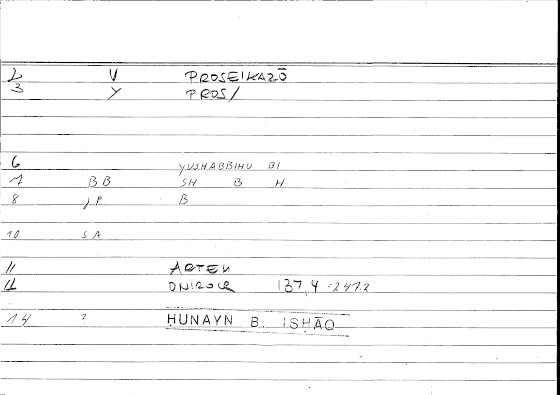 2 V PROSEIKAZŌ
3 Y PROS/
6 YUSHABBIHU BI
7 BB SH B H
8 JP B
10 SA
11 ARTEM
12 ONIROCR 137,4 :247.2
14 ? ḤUNAYN B. ISḤĀQ